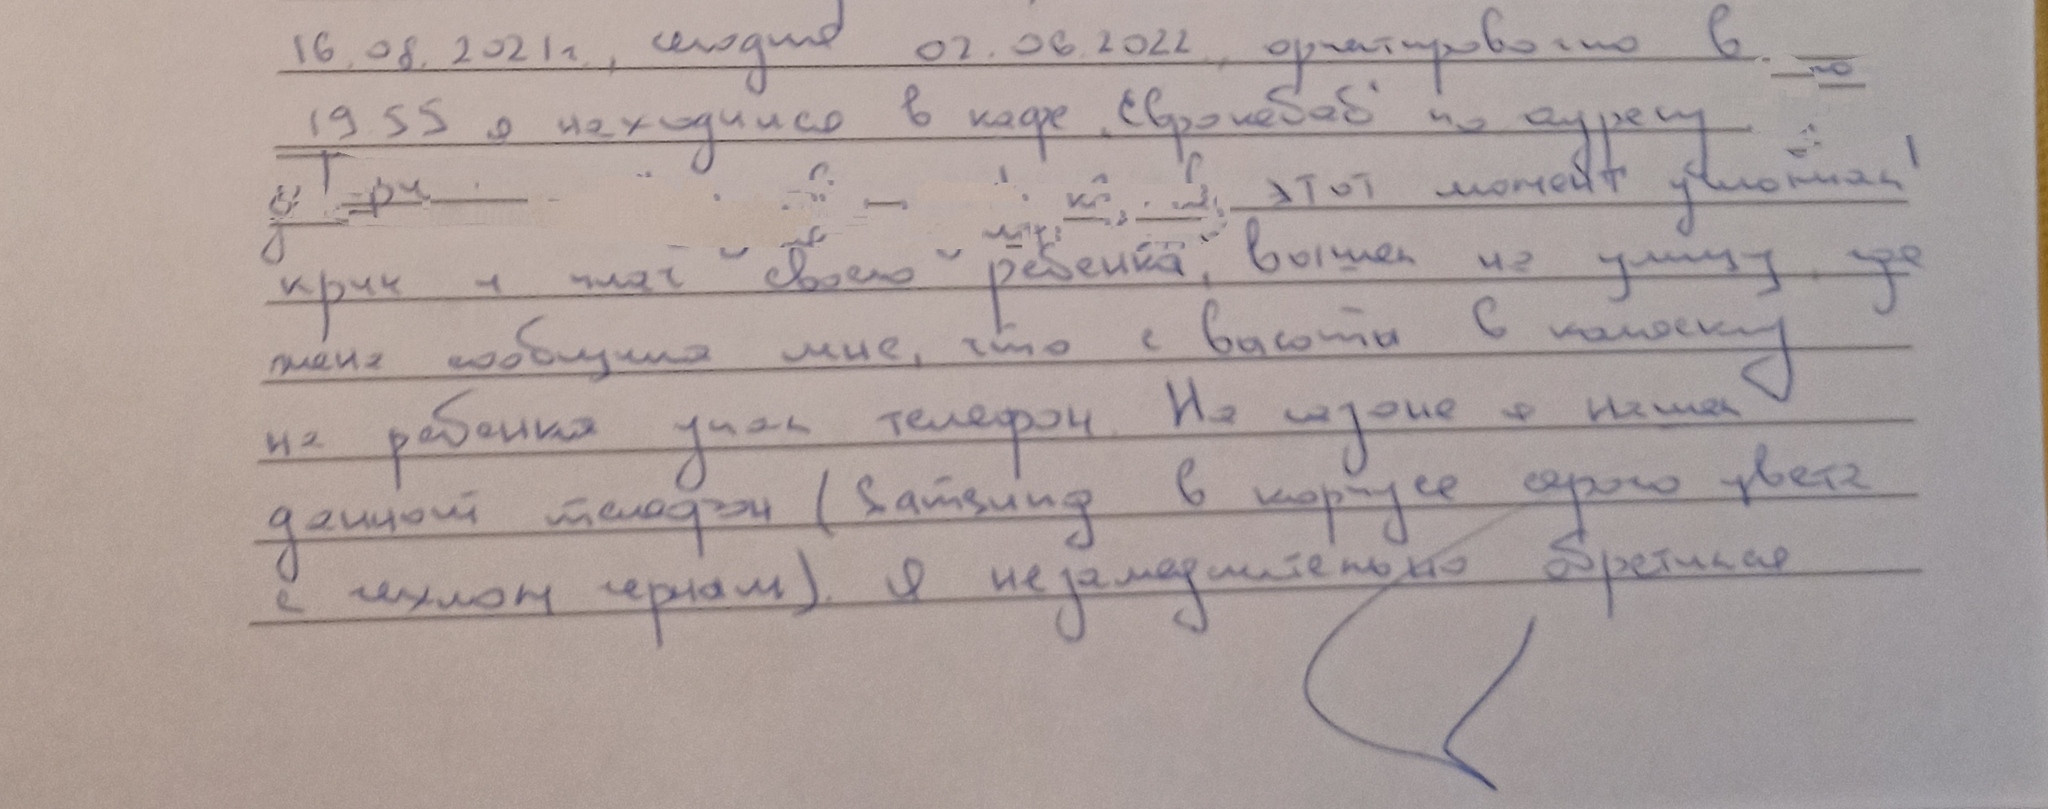 16.08.2021г., сегодня 02.06.2022, ориентировочно в
19 55 я находился в кафе "Еврокебаб" по адресу
этот момент услышал
крик и плач своего ребенка, вышел на улицу, где
жена сообщила мне, что с высоты в коляску
на ребенка упал телефон. На газоне я нашел
данный телефон (Samsung в корпусе серого цвета
с чехлом черным). Я незамедлительно обратился